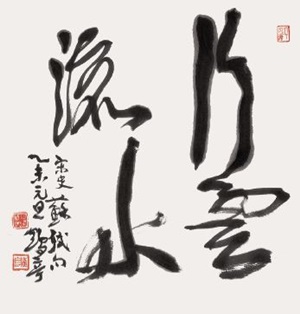 行雲
流水
宋史蘇軾句
乙未元旦